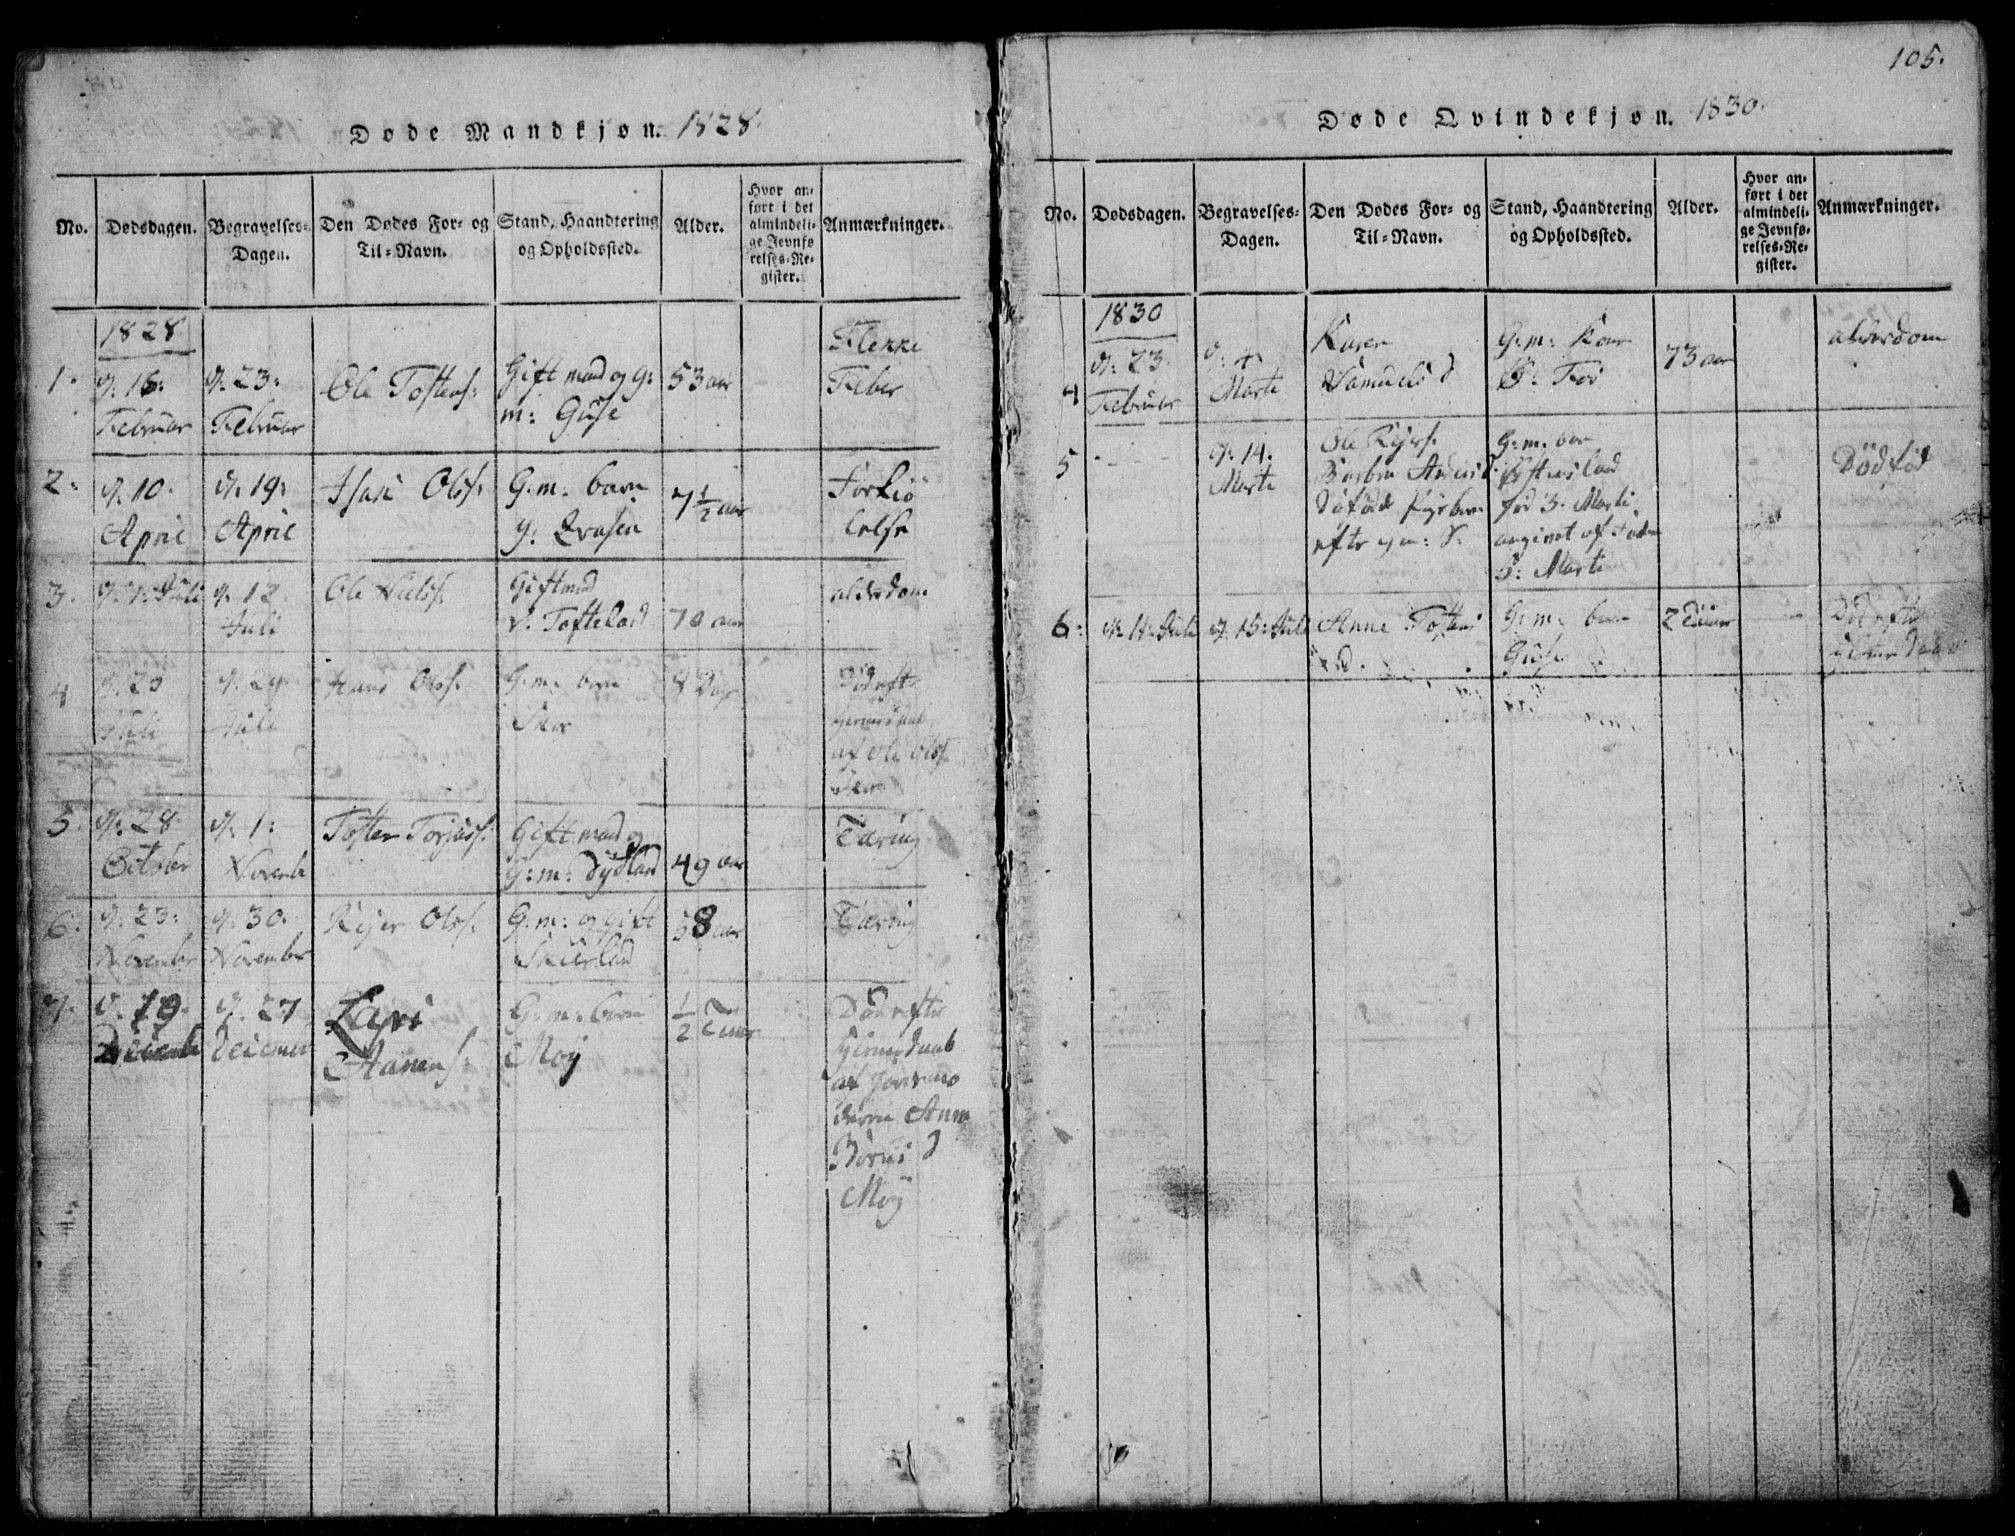 105.
Døde Mandkjøn. 1828.
No.
Dødsdagen.
Begravelses-
Dagen.
Den Dødes For- og
Til-Navn.
Stand, Haandtering
og Opholdssted.
Alder.
Hvor an-
ført i det
almindeli-
ge Jevnfø-
relses-Re-
gister.
Anmærkninger.
1828
1.
d. 16:
Februar
d. 23:
Februar
Ole Tostens:
Gift mand og g:
m: Guse
53 aar
Flekke
Feber
2.
d. 10.
April
d. 19:
April
Isak Olss:
G: m: barn
7 1/2 aar
Forkiø
lelse
3.
d. 1. Juli
d. 12.
Juli
Ole Nielss.
Giftmand
v. Tofteland
70 aar
alderdom
4
d. 20
Juli
d. 29.
Juli
Hans Olss.
G: m: barn
8 Dage
Død efter
hiemmedaab
af Ole Olss.
5.
d. 28
October
d. 1:
Novemb
Tosten Torjuss:
Gift mand og
G: m: Dydland
49 aar
Tæring
6.
d. 23:
November
d. 30.
November
Rejer Olss.
G: m: og gift
Skierland
58 aar
Tæring
7.
d. 19.
Decemb
d. 27
Decemer
Lars
Aanens:
G: m: barn
Moy
1/2 Time
Død efter
hiemmedaab
af Jordemo
deren Anne
Børuls D
Moy
Døde Qvindekjøn. 1830.
No.
Dødsdagen.
Begravelses-
Dagen.
Den Dødes For- og
Til-Navn.
Stand, Haandtering
og Opholdssted.
Alder.
Hvor an-
ført i det
almindeli-
ge Jevnfø-
relses-Re-
gister.
Anmærkninger.
1830
4
d. 23.
Februar
d. 4
Marti
Karen
Samuels d
G: m: Kone
73 aar
alderdom
5
d. 14.
Marti
Ole Rejers.
G: m: barn
fød 3. Marti
angivet af Fader
5: Marti
Dødfød
6:
d. 11. Juli
d. 15: Juli
Anne Tostens
d.
G: m: barn
Guse
2 Timer
Død efter
hiemmedaab